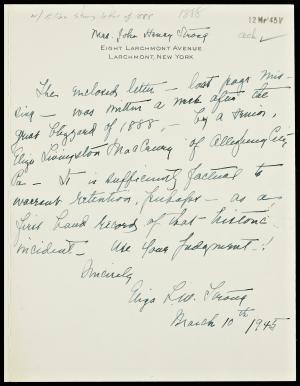 1888
12 Mr '45 V
ack ✓
Mrs. John Henry Strong
EIGHT LARCHMONT AVENUE
LARCHMONT, NEW YORK
The enclosed letter – last page mis-
sing – was written a week after the
great blizzard of 1888, – by a
Eliza Livingston McCreery of Allegheny City,
Pa – It is sufficiently factual to
warrant retention, perhaps – as a
first hand record of that historic
incident – Use your judgment –!
Sincerely
Eliza L. M. Strong
March 10th 1945